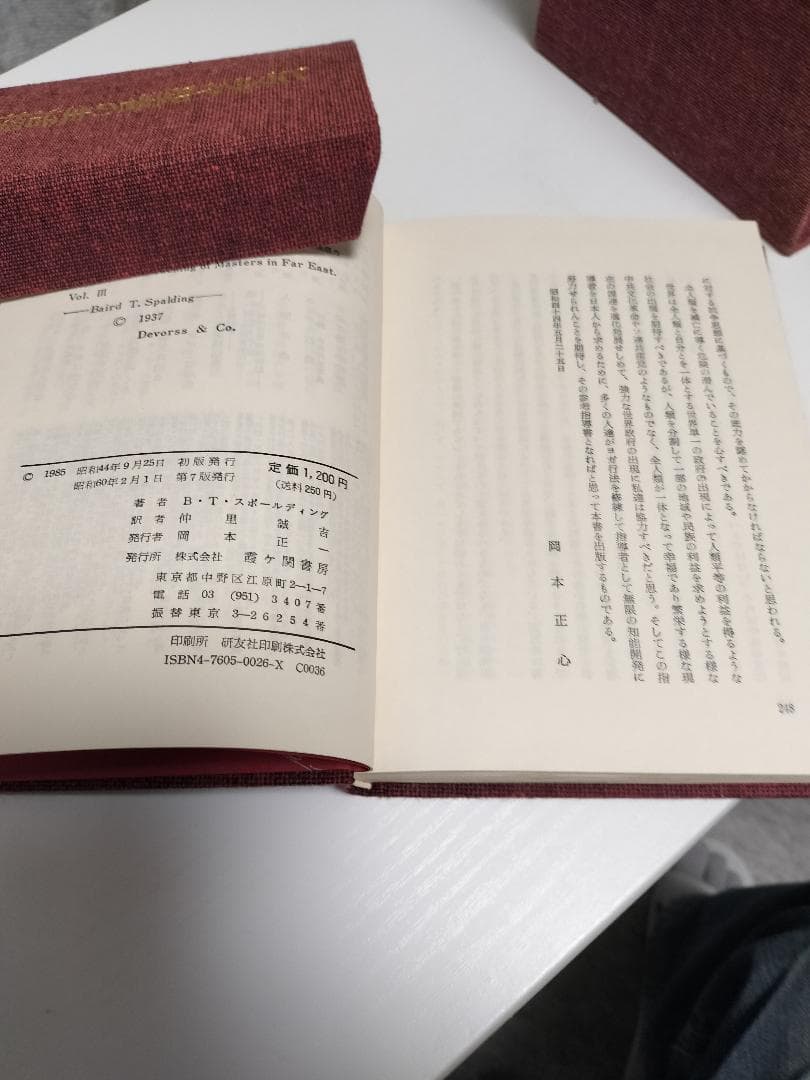 に対する抗争思想に基づくもので、その底力を認めてかからなければならないと思われる。
全人類を滅亡に導く危険の潜んでいることを心すべきである。
世界は全人類と自分とを一体とする世界単一の政府の出現によって人類平等の利益を得るような
社会の出現を期待すべきであるが、人類を分割して一部の地域や民族の利益を求めようとする様な
中共文化革命やソ連共産党のようなものでなく、全人類が一体となって幸福であり繁栄する様な現
在の国連を進化発展せしめて、強力な世界政府の出現に私達は協力すべきだと思う。そしてこの指
導者を日本人から求めるために、多くの人達がヨガ行法を修練して指導者として無限の知能開発に
努力せられんことを期待し、その参考指導書となればと思って本書を出版するものである。
昭和四十四年五月二十五日
岡本正心
248
of Masters in Far East.
Vol. III
——Baird T. Spalding——
© 1937
Devorss & Co.
定価1,200円
(送料250円)
© 1985 昭和44年9月25日 初版発行
昭和60年2月1日 第7版発行
著者 B・T・スポールディング
訳者 仲里誠吉
発行者 岡本正一
発行所 株式会社 霞ケ関書房
東京都中野区江原町2—1—7
電話 03 (951) 3407番
振替東京 3—26254番
印刷所 研友社印刷株式会社
ISBN4-7605-0026-X C0036